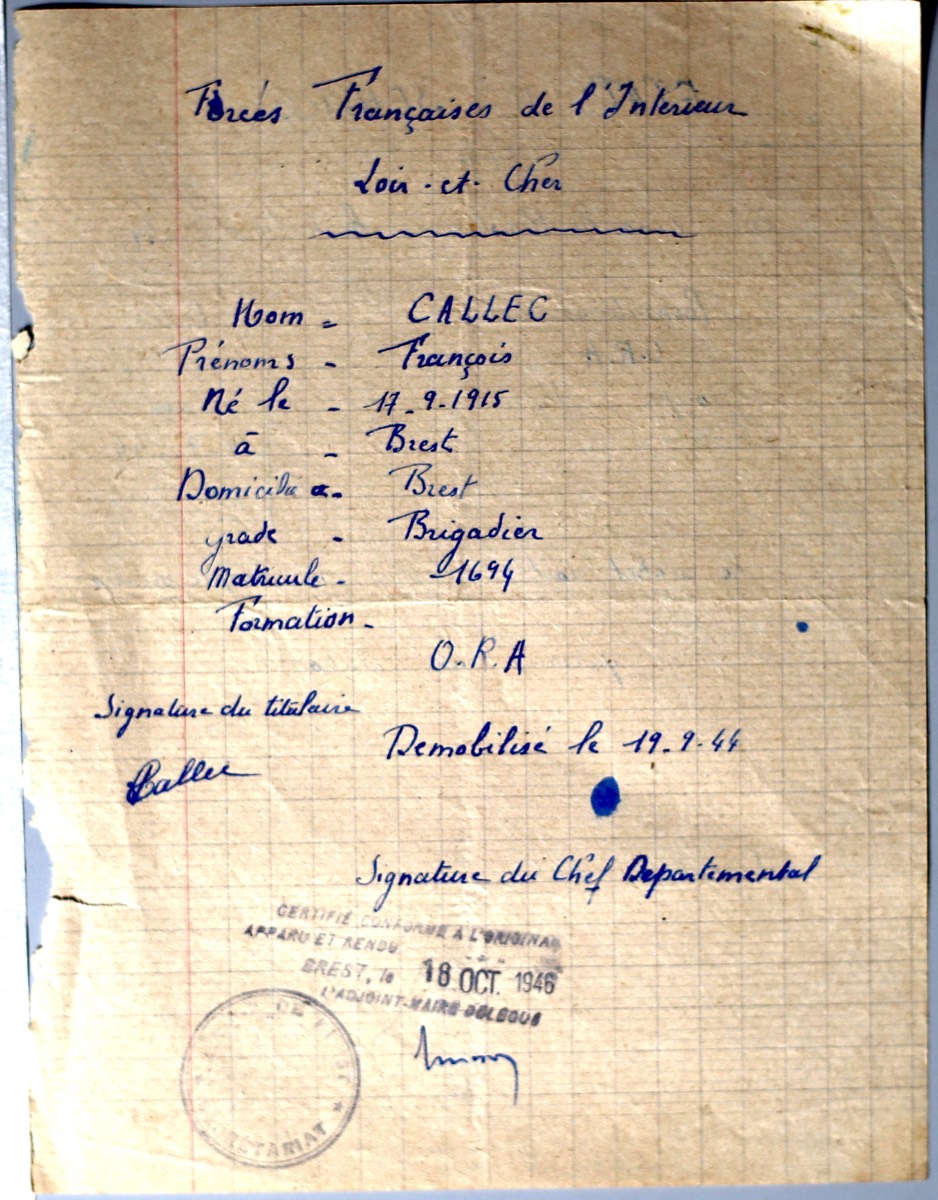 Forces Françaises de l'Interieur
Loir-et-Cher
Nom = CALLEC
Prénoms - François
Né le - 17-9-1915
à - Brest
Domicile à - Brest
grade - Brigadier
Matricule - 1694
Formation -
O.R.A
Signature du titulaire
Callec
Demobilisé le 19.9.44
Signature du Chef Departemental
CERTIFIÉ CONFORME A L'ORIGINAL
APPARU ET RENDU
BREST, le 18 OCT. 1946
L'ADJOINT-MAIRE DÉLÉGUÉ